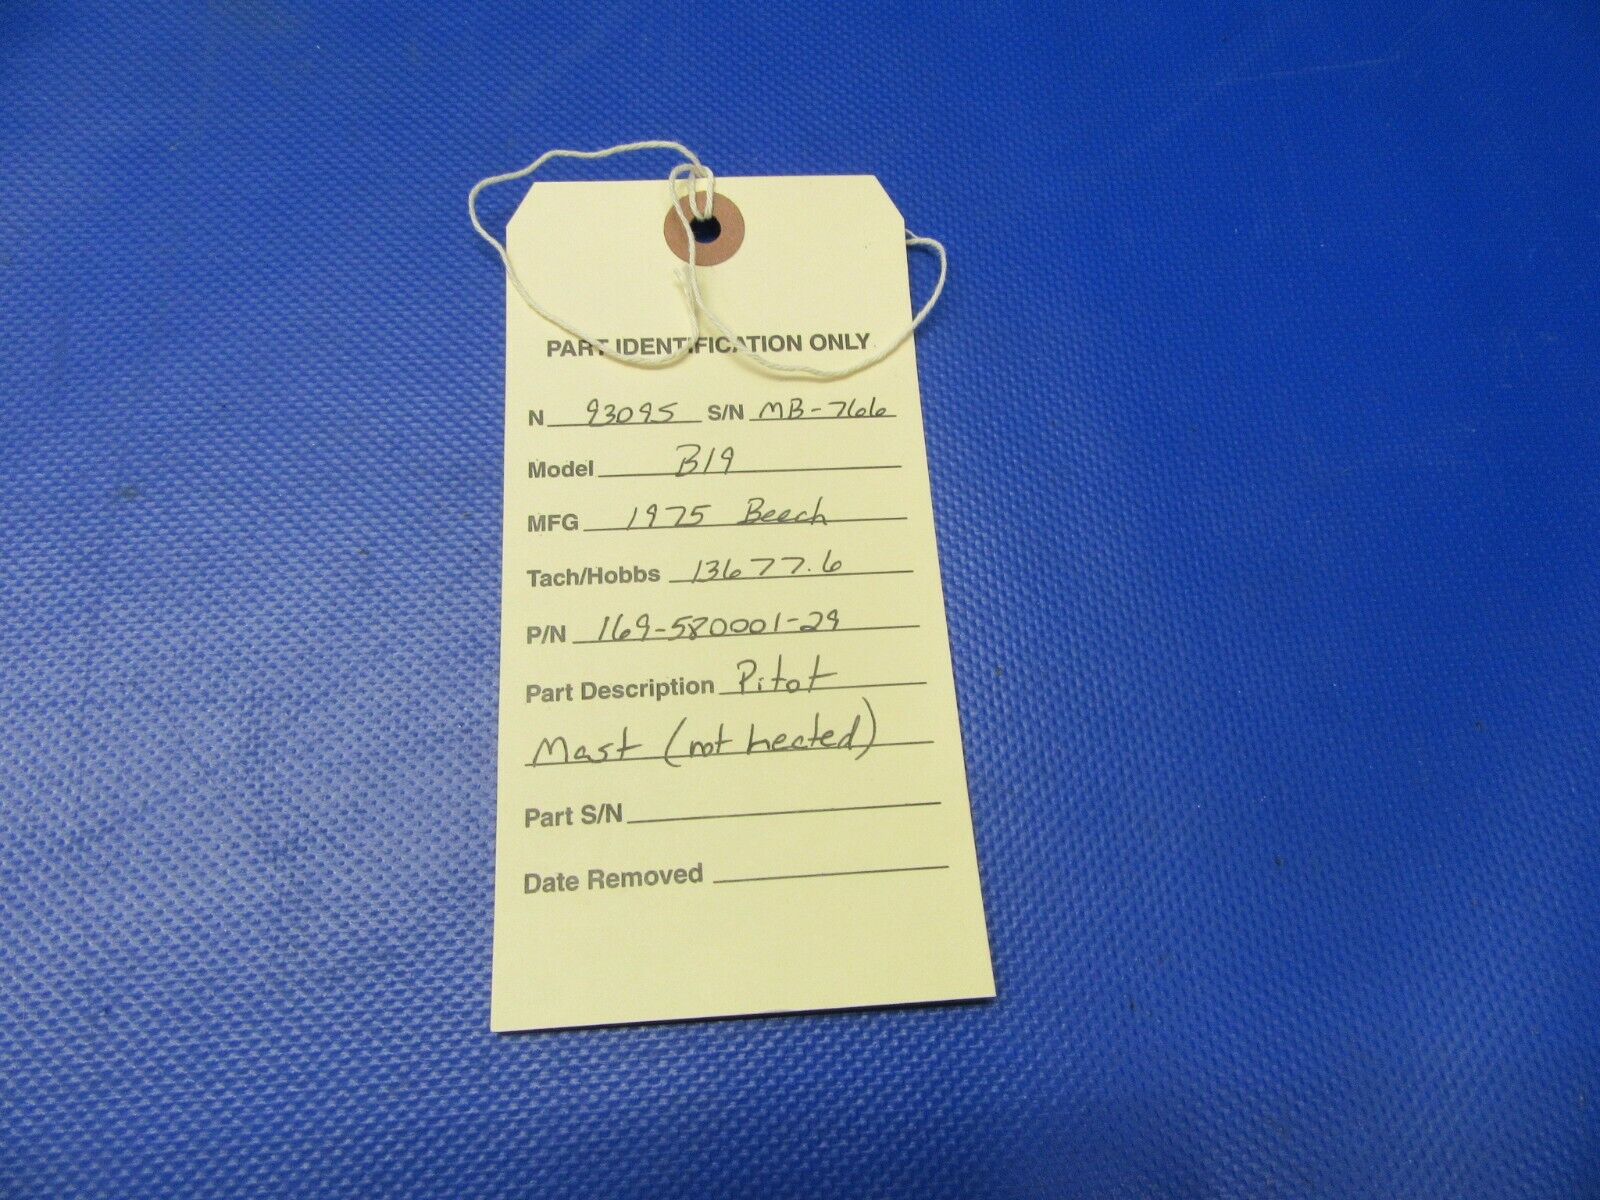 PART IDENTIFICATION ONLY
N 93095 S/N MB-766
Model B19
MFG 1975 Beech
Tach/Hobbs 13677.6
P/N 169-580001-29
Part Description Pitot
Mast (not heated)
Part S/N
Date Removed